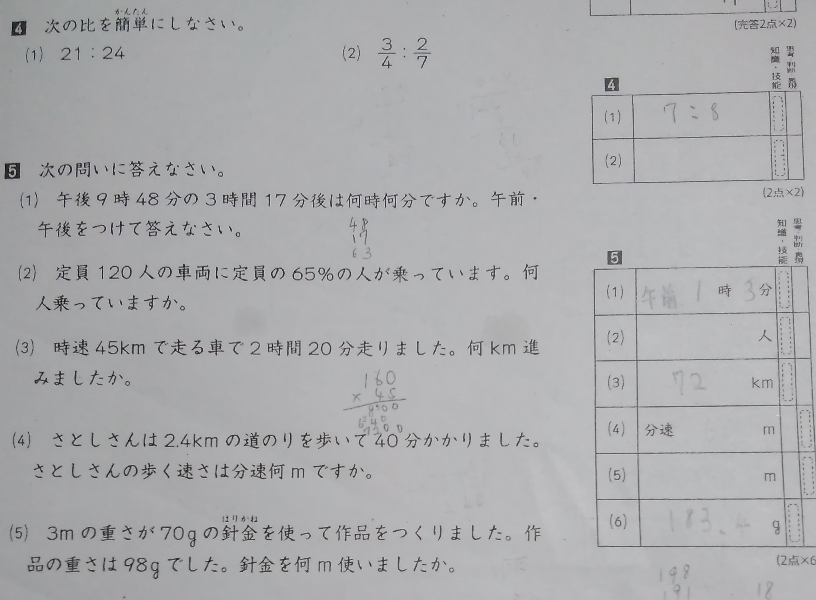 4 次の比を簡単にしなさい。
かんたん
(1) 21:24
(2) 3/4 : 2/7
5 次の問いに答えなさい。
(1) 午後9時48分の3時間17分後は何時何分ですか。午前・
午後をつけて答えなさい。
48
17
63
(2) 定員120人の車両に定員の65%の人が乗っています。何
人乗っていますか。
(3) 時速45kmで走る車で2時間20分走りました。何km進
みましたか。
160
× 45
7200
(4) さとしさんは2.4kmの道のりを歩いて40分かかりました。
さとしさんの歩く速さは分速何mですか。
はりがね
(5) 3mの重さが70gの針金を使って作品をつくりました。作
品の重さは98gでした。針金を何m使いましたか。
(完答2点×2)
知識・技能
思考・判断・表現
4
(1) 7:8
(2)
(2点×2)
知識・技能
思考・判断・表現
5
(1) 午前 1 時 3 分
(2) 人
(3) 72 km
(4) 分速 m
(5) m
(6) 183.4 g
(2点×6
198
191
18